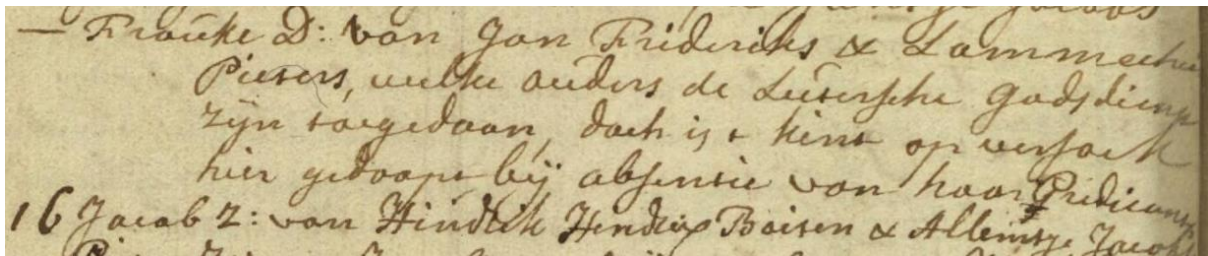 — Frauke D: van Jan Frideriks & Lammechie
Pieters, welke ouders de Lutersche Godsdienst
zijn toegedaan, doch is t kint op versoek
hier gedoopt bij absensie van haar Predicant
16 Jacob Z: van Hindrik Hendrix Boisen & Allentje Jacobs